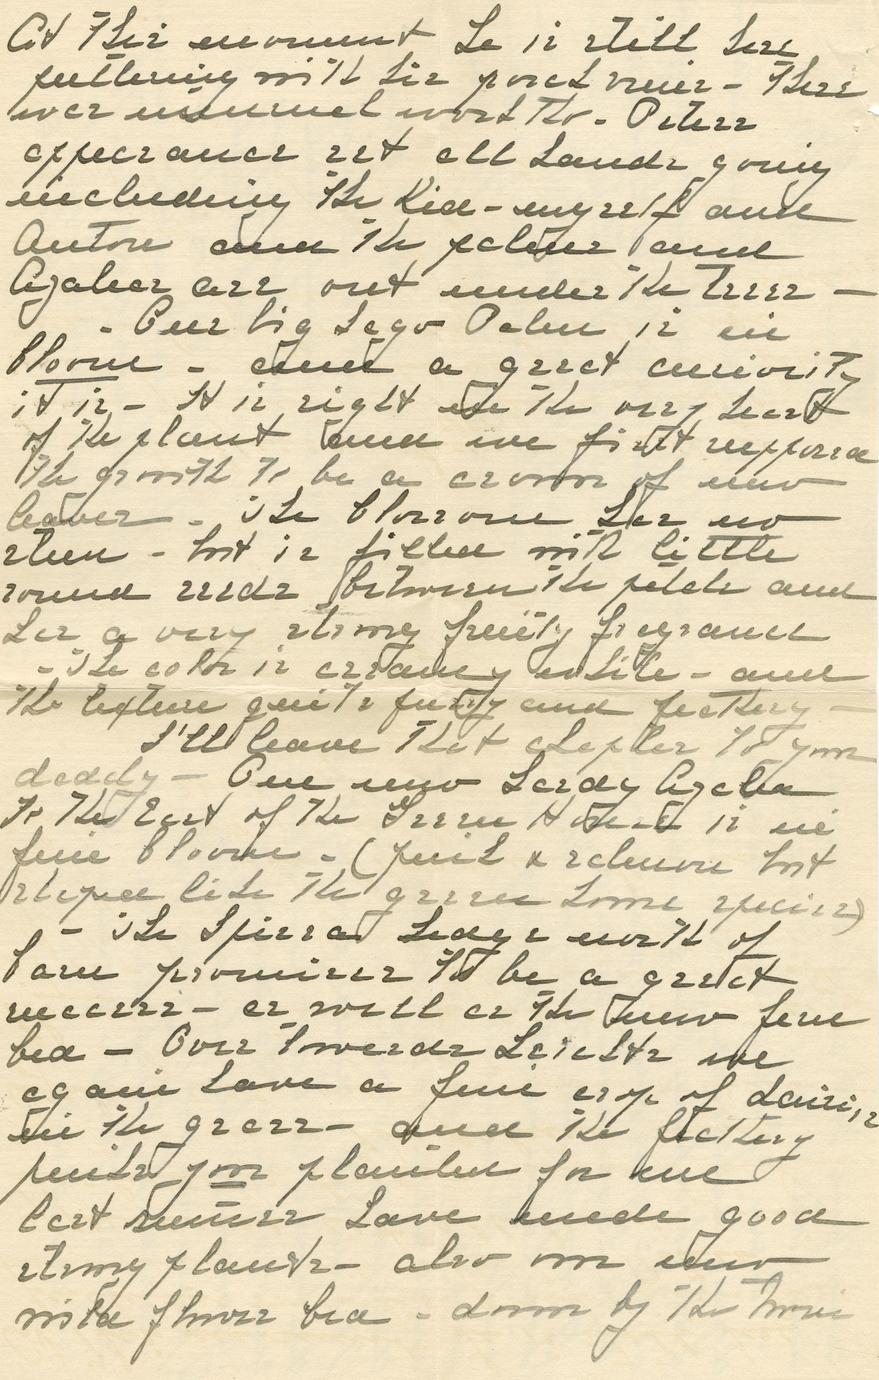 At this moment he is still here
puttering with his porch vines - There
was unusual warmth - Peters
appearance set all hands going
including the Kid - myself and
Anton and the palms and
Azaleas are out under the Trees -
- Our big Sego Palm is in
bloom - and a great curiosity
it is - It is right in the very heart
of the plant and we first supposed
the growth to be a crown of new
leaves - The blossom has no
stem - but is filled with little
round seeds between the petals and
has a very strong fruity fragrance
- The color is creamy white - and
the texture quite fuzzy and feathery -
I'll leave that chapter to your
daddy - One new hardy Azalea
to the East of the Green House is in
fine bloom - (pink & salmon but
shaped like the green house species)
- The Spirea hedge north of
barn promises to be a great
success - as well as the new fern
bed - Over towards we
again have a fine crop of daisies
in the grass - and the feathery
pinks you planted for me
last summer have made good
strong plants - also our new
wild flower bed - down by the